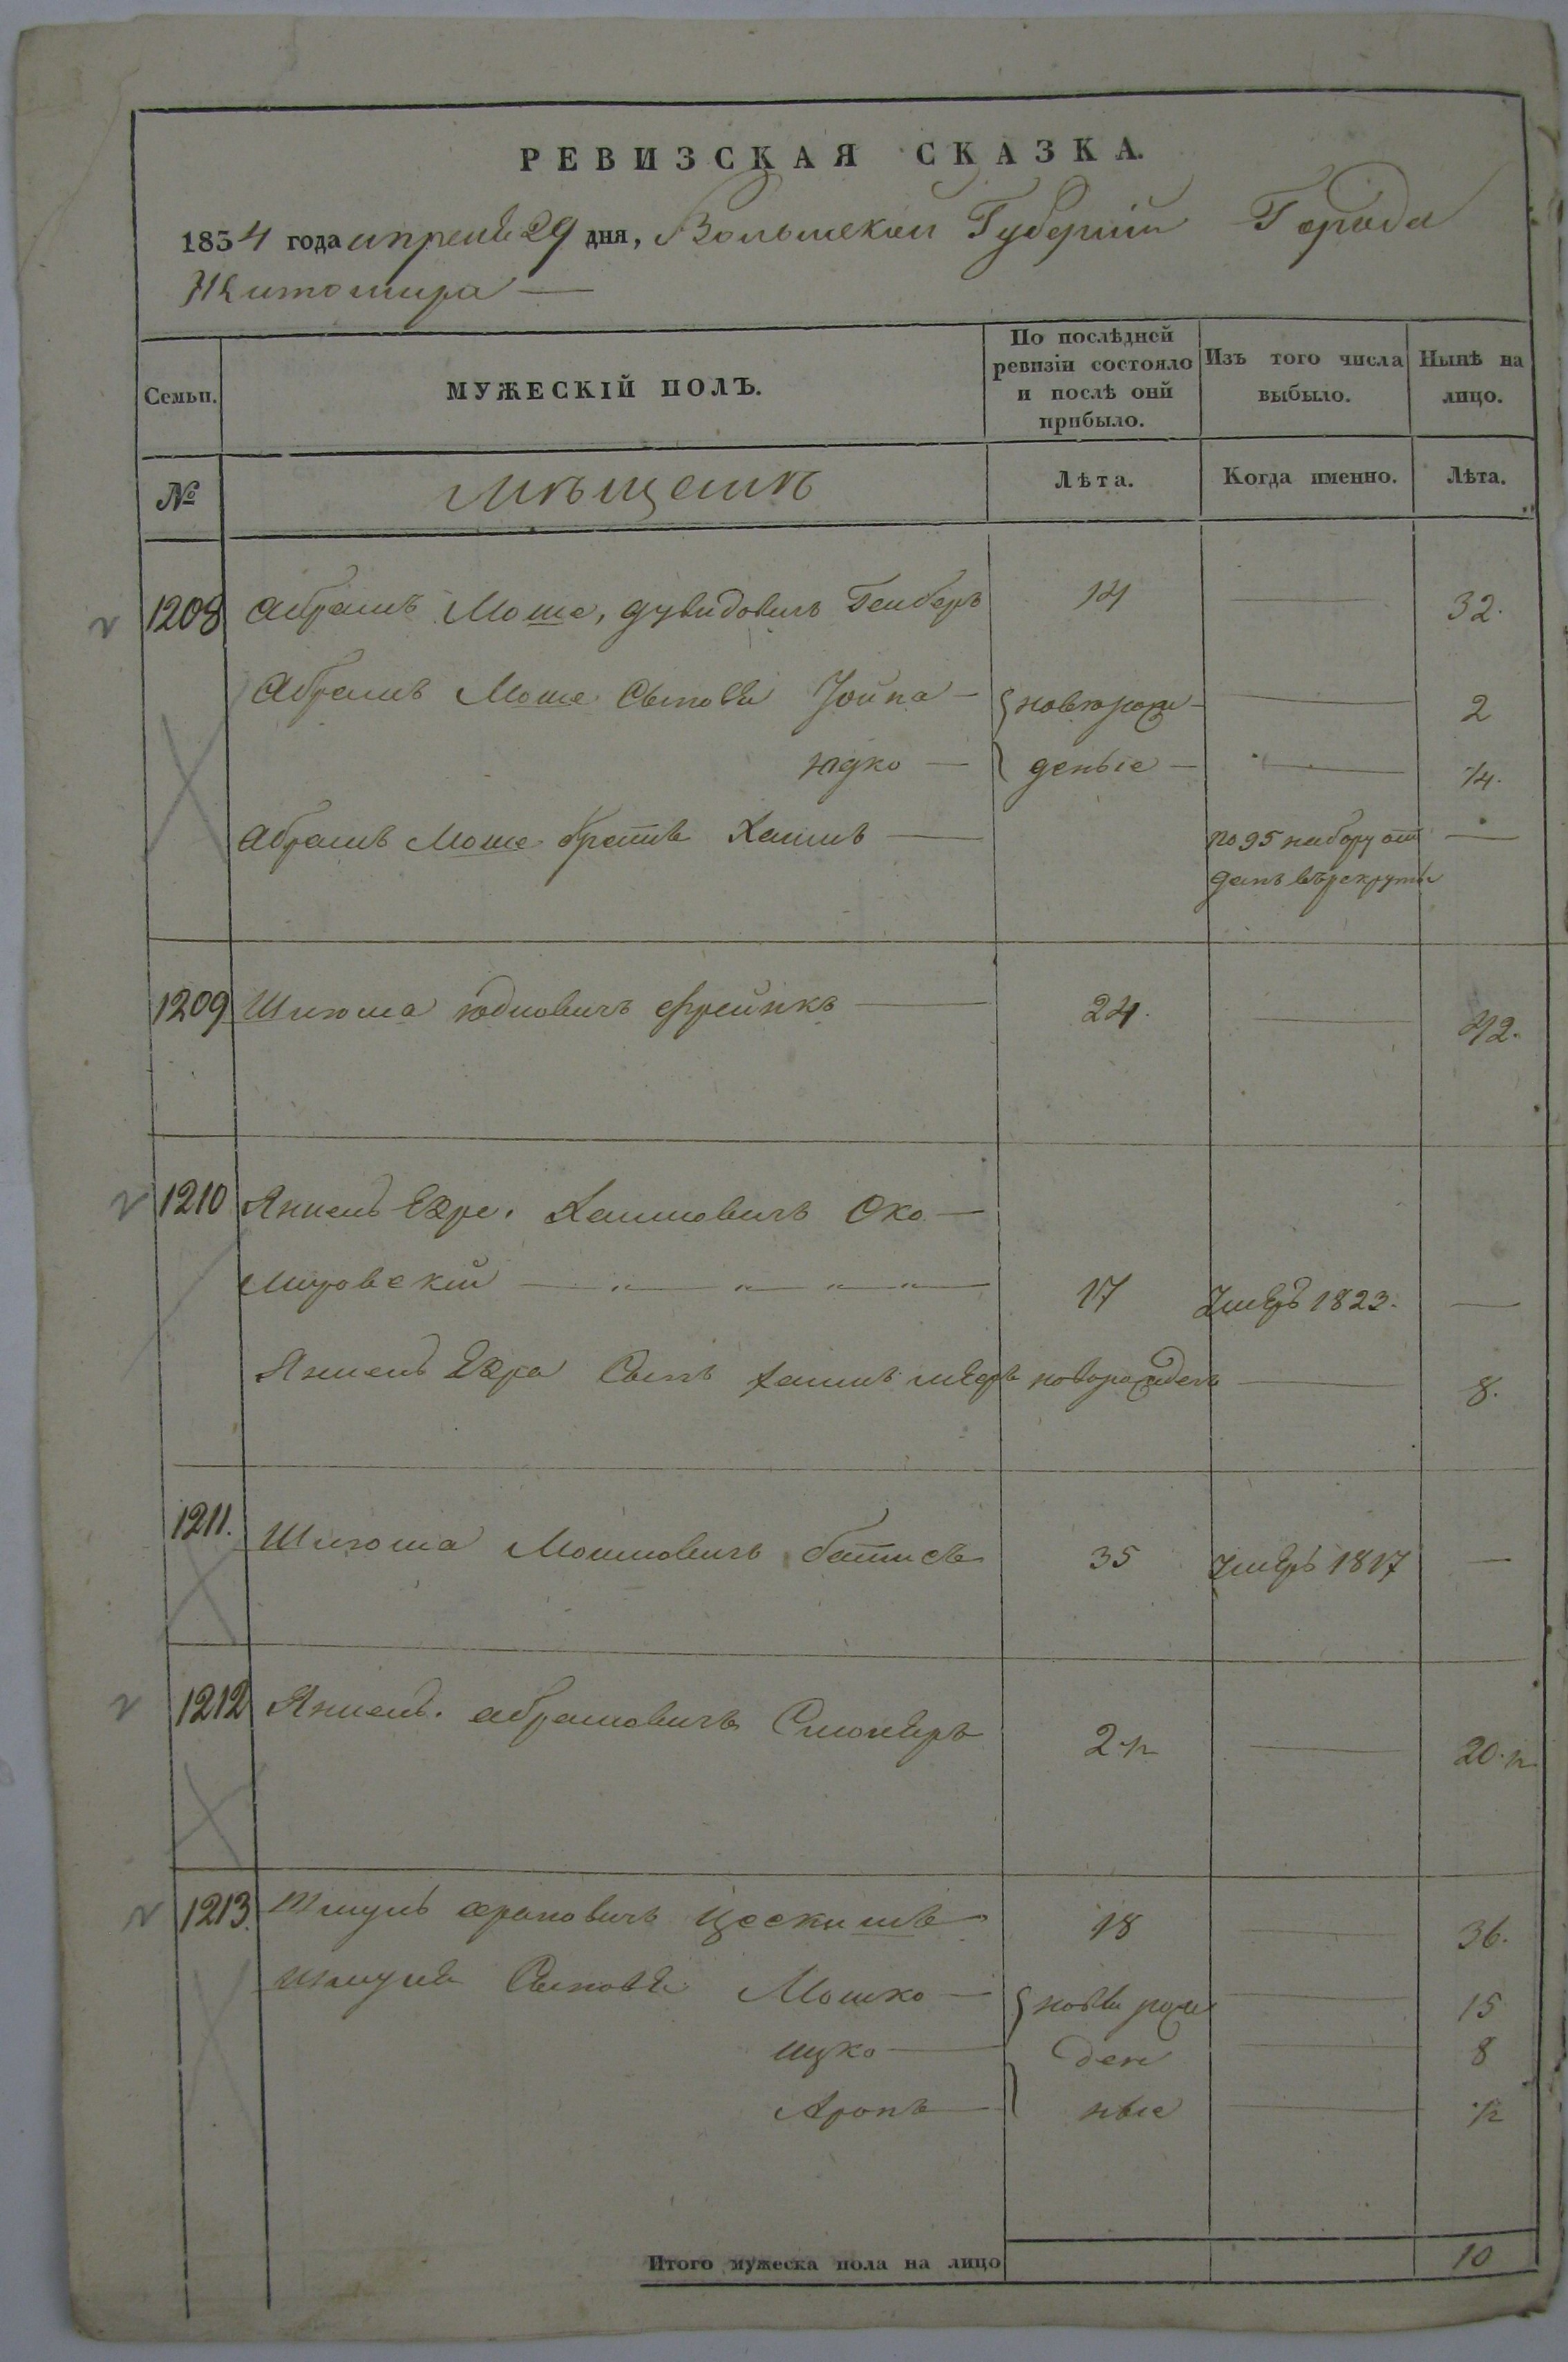 РЕВИЗСКАЯ СКАЗКА.
1834 года апреля 29 дня, Волынской Губернии Города
Житомира —
Семьи. МУЖЕСКІЙ ПОЛЪ. По послѣдней ревизіи состояло и послѣ онй прибыло. Изъ того числа выбыло. Нынѣ на лицо.
№ Мѣщанъ Лѣта. Когда именно. Лѣта.
1208 Абрамъ Моше, Дувидовичъ 14 — 32.
Абрамъ Моше Сыновя Іойна — новорож — 2
Юдко — деные — 1/4.
Абрамъ Моше братъ Хаимъ — по 95 набору от —
данъ въ рекруты
1209 Шлюма Юдковичъ — 24. — 42.
1210 Янкель Евре. Хаимовичъ Око —
мировскій — 17 Умеръ 1823. —
Янкель Евра Сынъ Хаимъ мееръ новорожденъ — 8.
1211. Шлюма Мошковичъ 35 умеръ 1817 —
1212 Янкель. Абрамовичъ 2 1/2 — 20 1/2
1213. Шмуль 18 — 36.
Шмуля Сыновя Мошко — новорож — 15
Ицко — ден — 8
Аронъ — ные — 1/2
Итого мужеска пола на лицо 10